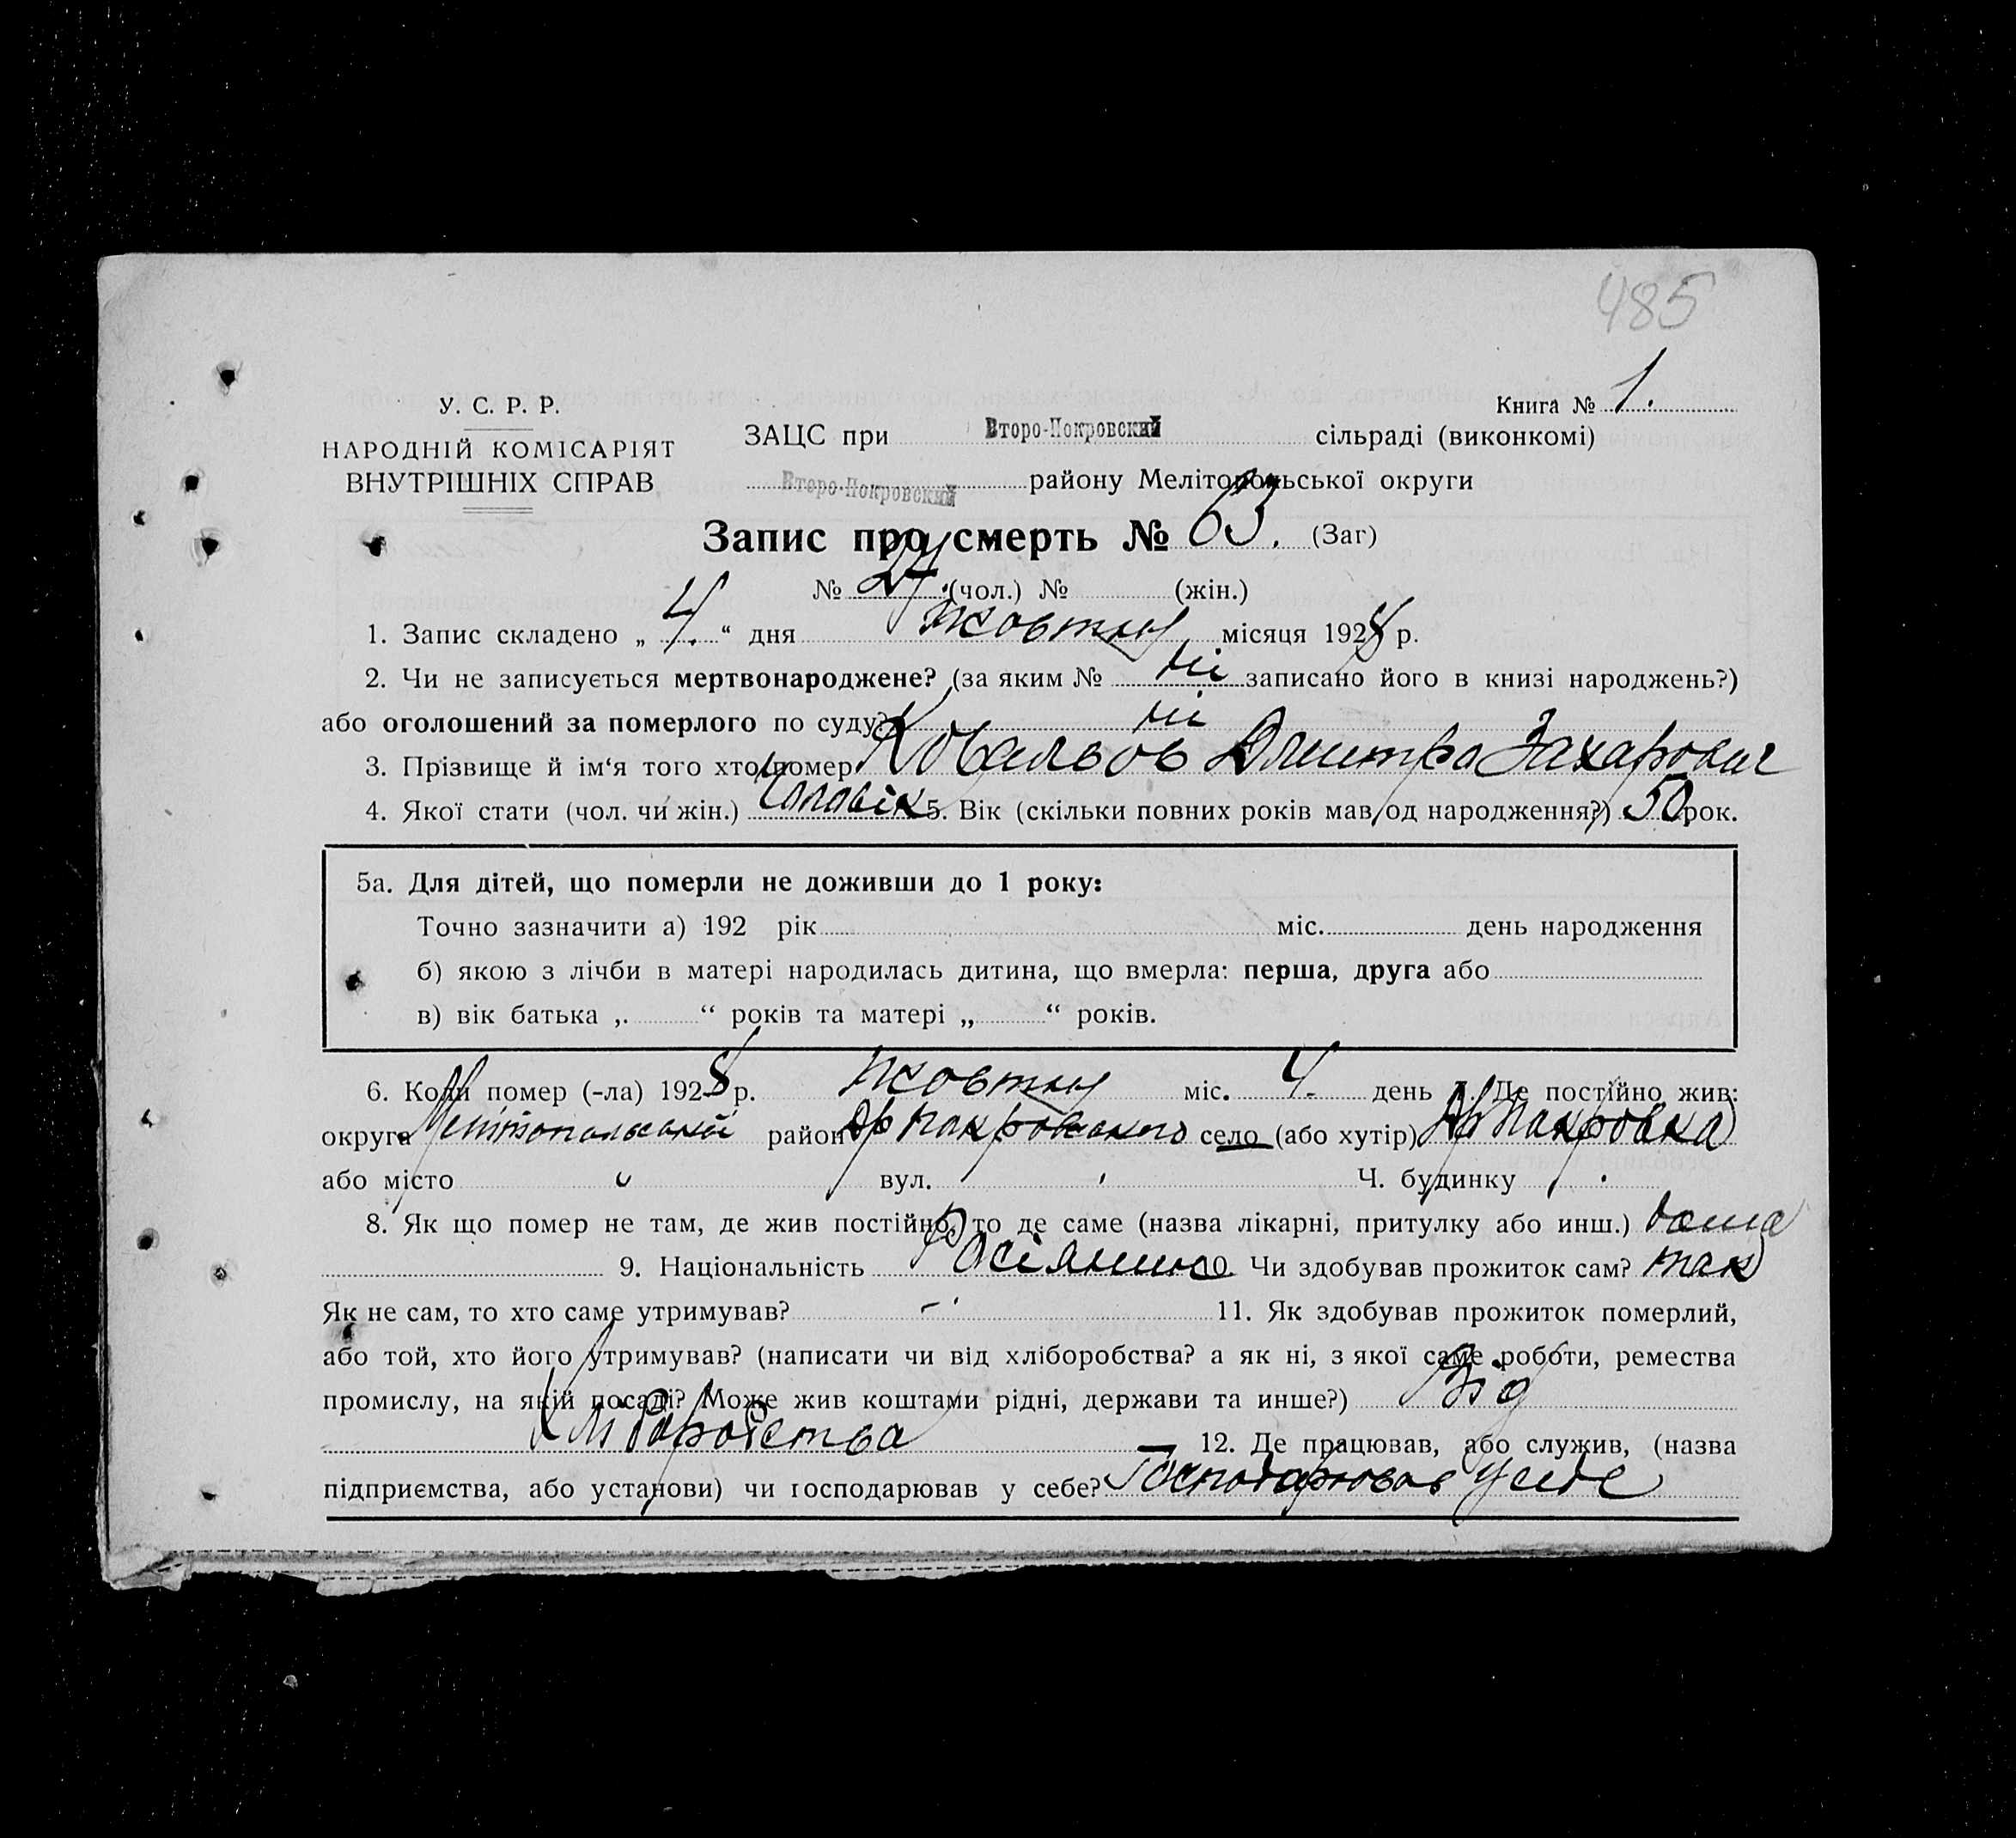 485
У. С. Р. Р.
НАРОДНІЙ КОМІСАРІЯТ
ВНУТРІШНІХ СПРАВ
Книга № 1.
ЗАЦС при Второ-Покровский сільраді (виконкомі)
Второ-Покровский району Мелітопольської округи
Запис про смерть № 63. (Заг)
№ 24. (чол.) № (жін.)
1. Запис складено „ 4. “ дня жовтня місяця 1928 р.
2. Чи не записується мертвонароджене? (за яким № ні записано його в книзі народжень?)
або оголошений за померлого по суду? ні
3. Прізвище й ім‘я того хто помер Ковальов Дмитро Захарович
4. Якої стати (чол. чи жін.) Чоловік 5. Вік (скільки повних років мав од народження?) 50 рок.
5а. Для дітей, що померли не доживши до 1 року:
Точно зазначити а) 192 рік міс. день народження
б) якою з лічби в матері народилась дитина, що вмерла: перша, друга або
в) вік батька „ “ років та матері „ “ років.
6. Коли помер (-ла) 1928 р. жовтня міс. 4. день 7. Де постійно жив:
округа Мелітопольської район село (або хутір)
або місто вул. Ч. будинку
8. Як що помер не там, де жив постійно, то де саме (назва лікарні, притулку або инш.) дома
9. Національність Росіянин Чи здобував прожиток сам? так
Як не сам, то хто саме утримував? - 11. Як здобував прожиток померлий,
або той, хто його утримував? (написати чи від хліборобства? а як ні, з якої саме роботи, ремества
промислу, на якій посаді? Може жив коштами рідні, держави та инше?) Від
хліборобства 12. Де працював, або служив, (назва
підприємства, або установи) чи господарював у себе? Господарював у себе